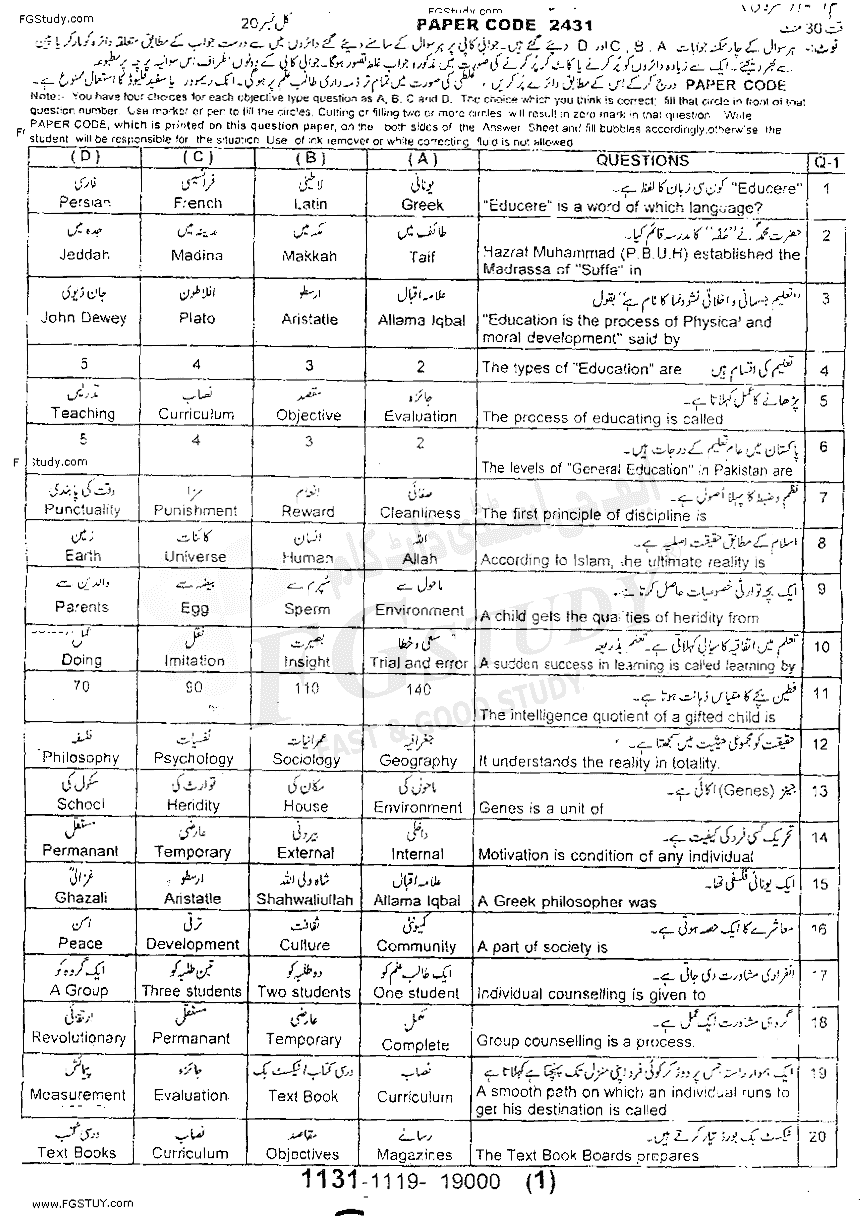 FGStudy.com
FGStudy.com
کل نمبر 20
PAPER CODE 2431
وقت 30 منٹ
نوٹ:- ہر سوال کے چار ممکنہ جوابات A ، B ، C اور D دیئے گئے ہیں۔ جوابی کاپی پر ہر سوال کے سامنے دیئے گئے دائروں میں سے درست جواب کے مطابق متعلقہ دائرہ کو مارکر یا پین
سے بھر دیجئے۔ ایک سے زیادہ دائروں کو پُر کرنے یا کاٹ کر پُر کرنے کی صورت میں مذکورہ جواب غلط تصور ہوگا۔ جوابی کاپی کے دونوں طرف اس سوالیہ پرچہ پر مطبوعہ
PAPER CODE درج کرکے اس کے مطابق دائرے پُر کریں، غلطی کی صورت میں تمام تر ذمہ داری طالب علم پر ہوگی۔ انک ریمور یا سفید فلیوڈ کا استعمال ممنوع ہے۔
Note:- You have four choices for each objective type question as A, B, C and D. The choice which you think is correct; fill that circle in front of that
question number. Use marker or pen to fill the circles. Cutting or filling two or more circles will result in zero mark in that question. Write
PAPER CODE, which is printed on this question paper, on the both sides of the Answer Sheet and fill bubbles accordingly, otherwise the
student will be responsible for the situation. Use of ink remover or white correcting fluid is not allowed
(D) (C) (B) (A) QUESTIONS Q-1
فارسی فرانسیسی لاطینی یونانی "Educere" کون سی زبان کا لفظ ہے۔ 1
Persian French Latin Greek "Educere" is a word of which language?
جدہ میں مدینہ میں مکہ میں طائف میں حضرت محمدؐ نے "صُفّہ" کا مدرسہ قائم کیا۔ 2
Jeddah Madina Makkah Taif Hazrat Muhammad (P.B.U.H) established the
Madrassa of "Suffa" in
جان ڈیوی افلاطون ارسطو علامہ اقبال "تعلیم جسمانی و اخلاقی نشوونما کا نام ہے" بقول 3
John Dewey Plato Aristatle Allama Iqbal "Education is the process of Physical and
moral development" said by
5 4 3 2 The types of "Education" are تعلیم کی اقسام ہیں 4
تدریس نصاب مقصد جائزہ پڑھانے کا عمل کہلاتا ہے۔ 5
Teaching Curriculum Objective Evaluation The process of educating is called
5 4 3 2 پاکستان میں عام تعلیم کے درجات ہیں۔ 6
F Study.com The levels of "General Education" in Pakistan are
وقت کی پابندی سزا انعام صفائی نظم و ضبط کا پہلا اصول ہے۔ 7
Punctuality Punishment Reward Cleanliness The first principle of discipline is
زمین کائنات انسان اللہ اسلام کے مطابق حقیقت اصلیہ ہے۔ 8
Earth Universe Human Allah According to Islam, the ultimate reality is
والدین سے بیضہ سے سپرم سے ماحول سے ایک بچہ توارثی خصوصیات حاصل کرتا ہے۔ 9
Parents Egg Sperm Environment A child gets the qualities of heridity from
عمل نقل بصیرت سعی و خطا تعلم میں اتفاقیہ کامیابی کہلاتی ہے۔ تعلم بذریعہ 10
Doing Imitation Insight Trial and error A sudden success in learning is called learning by
70 90 110 140 فطین بچے کا مقیاس ذہانت ہوتا ہے۔ 11
The intelligence quotient of a gifted child is
فلسفہ نفسیات عمرانیات جغرافیہ حقیقت کو مجموعی حیثیت میں سمجھتا ہے۔ 12
Philosophy Psychology Sociology Geography It understands the reality in totality.
سکول کی توارث کی مکان کی ماحول کی جینز (Genes) اکائی ہے۔ 13
School Heridity House Environment Genes is a unit of
مستقل عارضی بیرونی داخلی تحریک کسی فرد کی کیفیت ہے۔ 14
Permanant Temporary External Internal Motivation is condition of any individual
غزالیؒ ارسطو شاہ ولی اللہ علامہ اقبالؒ ایک یونانی فلسفی تھا۔ 15
Ghazali Aristatle Shahwaliullah Allama Iqbal A Greek philosopher was
امن ترقی ثقافت کمیونٹی معاشرے کا ایک حصہ ہوتی ہے۔ 16
Peace Development Culture Community A part of society is
ایک گروہ کو تین طلبہ کو دو طلبہ کو ایک طالب علم کو انفرادی مشاورت دی جاتی ہے۔ 17
A Group Three students Two students One student Individual counselling is given to
ارتقائی مستقل عارضی مکمل گروہی مشاورت ایک عمل ہے۔ 18
Revolutionary Permanant Temporary Complete Group counselling is a process.
پیمائش جائزہ درسی کتاب / ٹیکسٹ بک نصاب ایک ہموار راستہ جس پر دوڑ کر کوئی فرد اپنی منزل تک پہنچتا ہے کہلاتا ہے 19
Measurement Evaluation Text Book Curriculum A smooth path on which an individual runs to
get his destination is called
درسی کتب نصاب مقاصد رسالے ٹیکسٹ بک بورڈ تیار کرتے ہیں۔ 20
Text Books Curriculum Objectives Magazines The Text Book Boards prepares
FGSTUDY
FAST & GOOD STUDY
1131-1119- 19000 (1)
www.FGSTUY.com